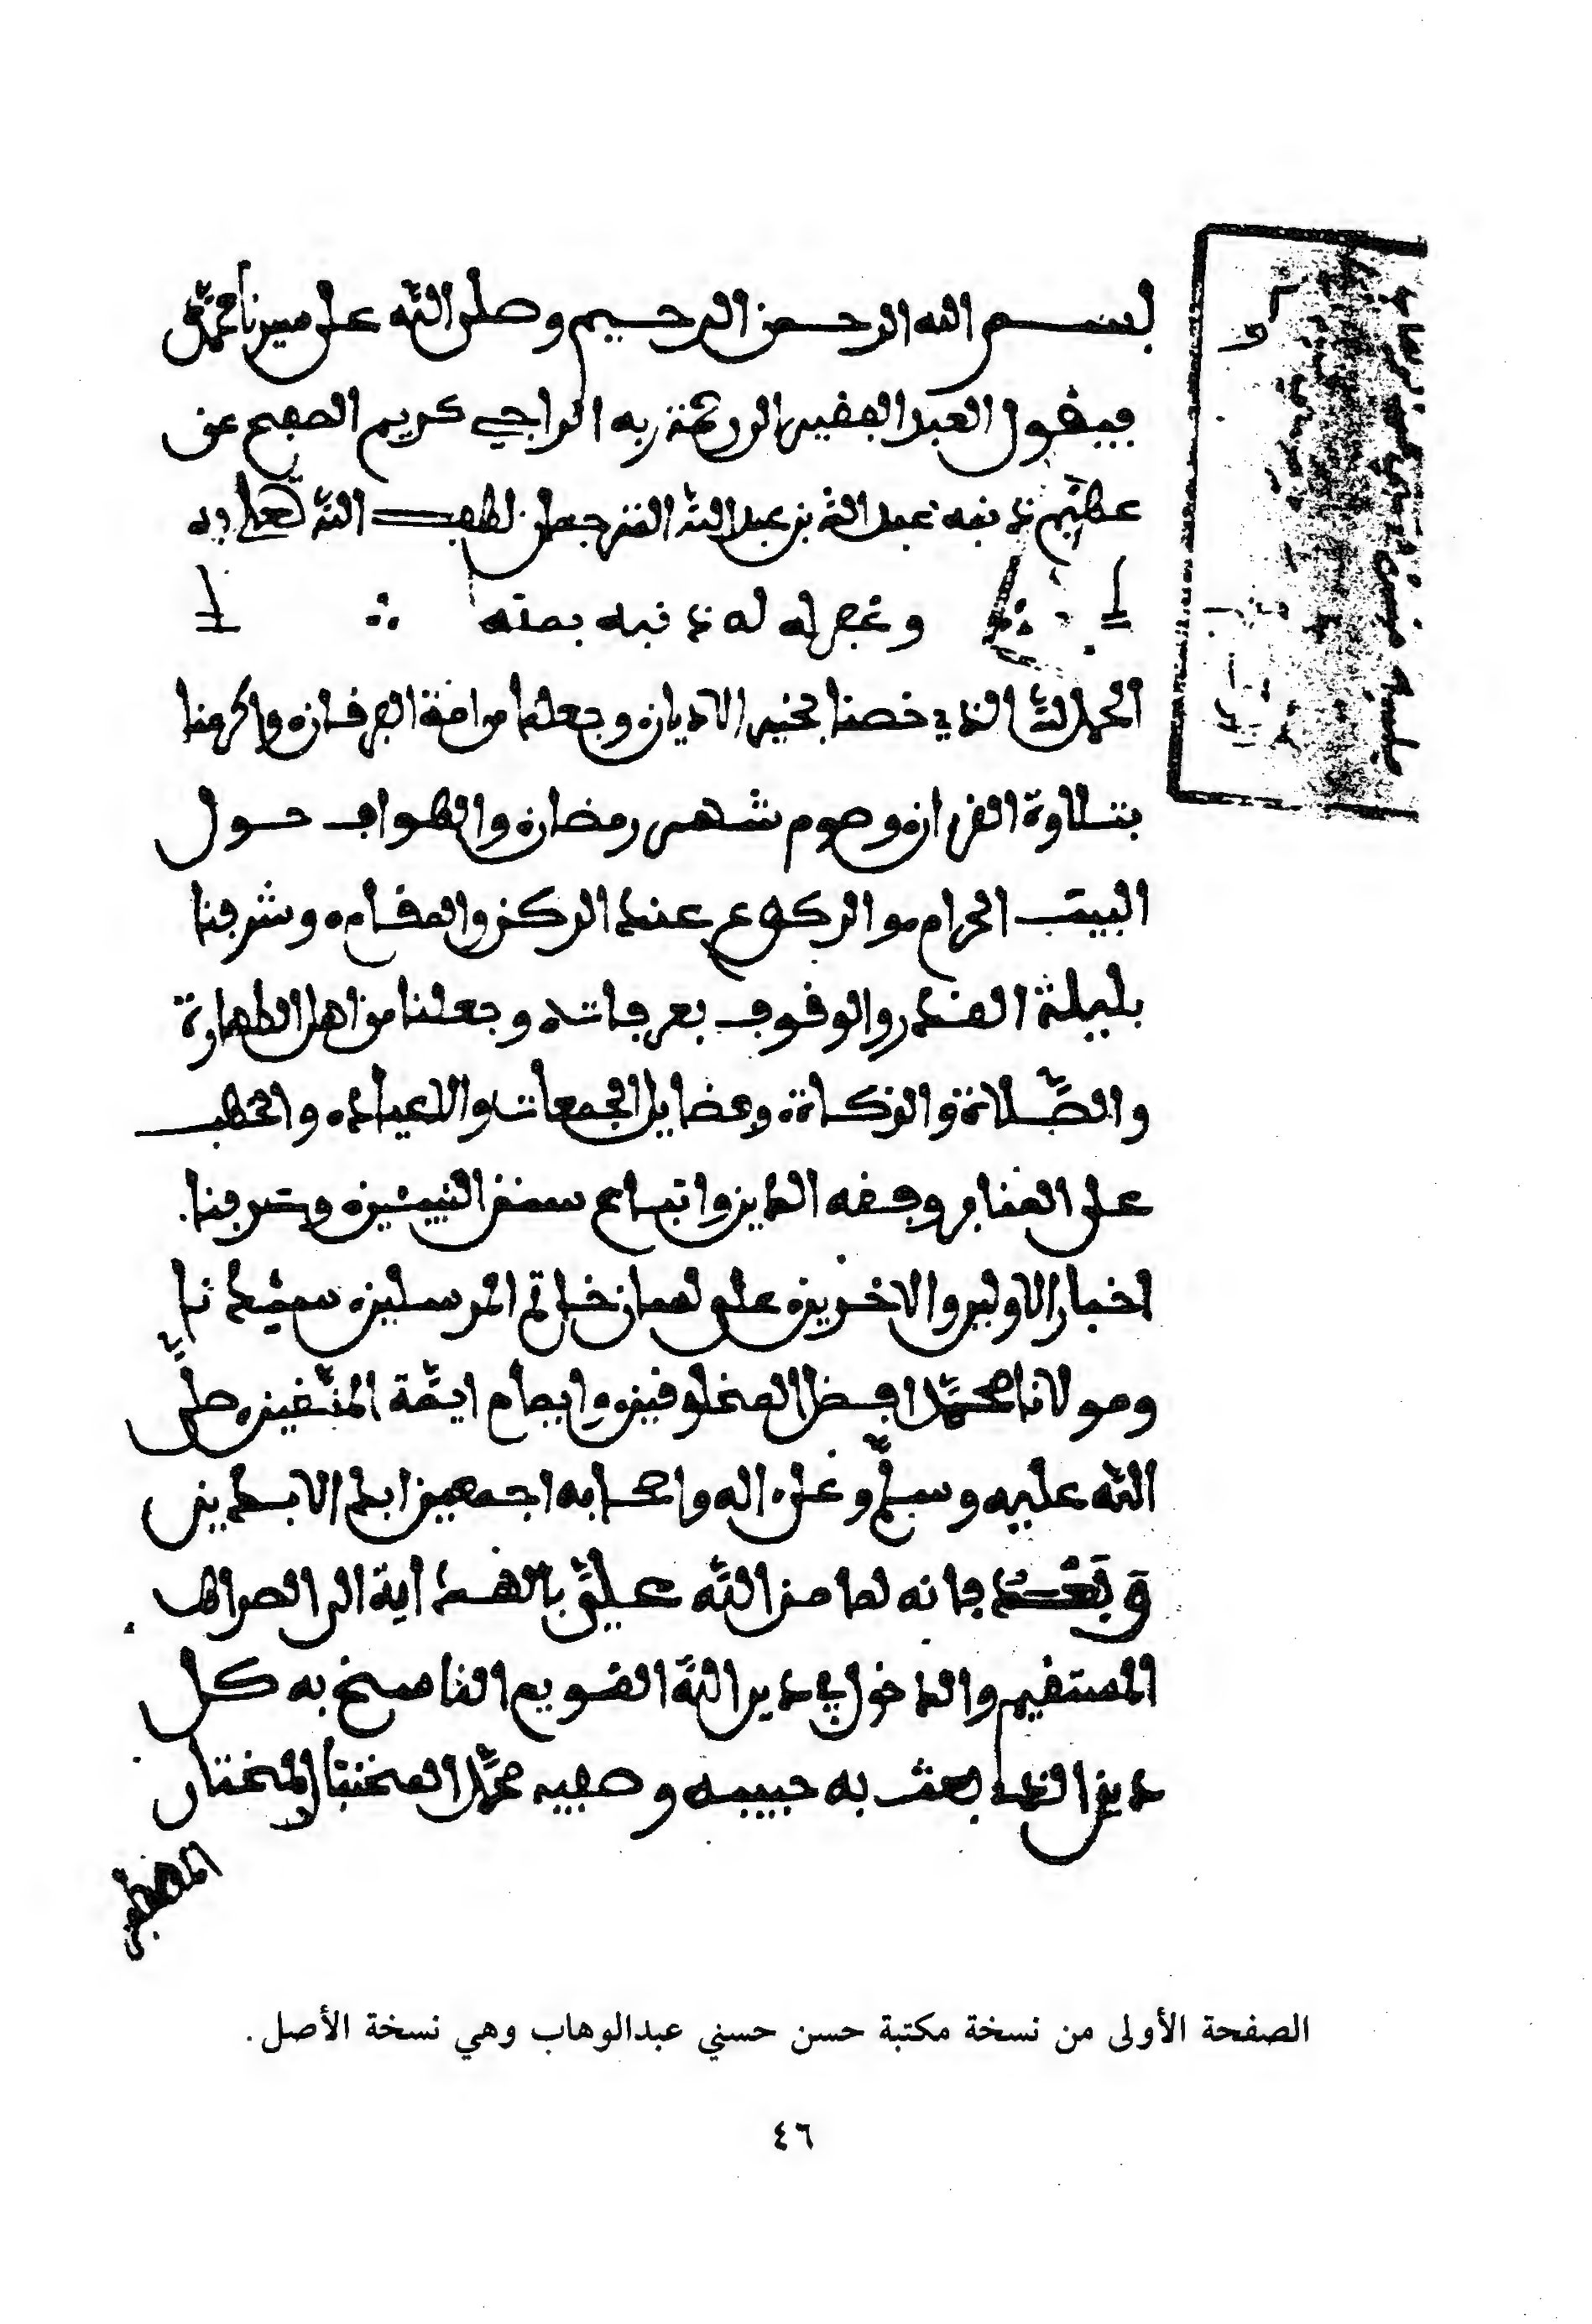 بســم الله الرحمن الرحيم وصلى الله على سيدنا محمد
فيقول العبد الفقير الى رحمة ربه الراجي كريم الصفح عن
عظيم ذنبه عبد الله بن عبد الله الترجمان لطف الله تعالى به
وغفر له ذنبه بمنه
الحمد لله الذي خصنا بخير الاديان وجعلنا من امة الفرقان واكرمنا
بتلاوة القران وصوم شهر رمضان والطواف حول
البيت الحرام والركوع عند الركن والمقام وشرفنا
بليلة القدر والوقوف بعرفات وجعلنا من اهل الطهارة
والصّلاة والزكاة وفضايل الجمعات والاعياد والخطب
على المنابر وفقه الدين واتباع سنن النبيين وعرفنا
اخبار الاولين والاخرين على لسان خاتم المرسلين سيّدنا
ومولانا محمّد افضل المخلوقين وامام ايمّة المتّقين صلّى
الله عليه وسلّم وعلى اله واصحابه اجمعين ابد الابدين
وبعــد فانه لما من الله عليّ بالهداية الى الصراط
المستقيم والدخول في دين الله القويم الناسخ به كل
دين الذي بعث به حبيبه وصفيه محمّد المختار
المصطفى
الصفحة الأولى من نسخة مكتبة حسن حسني عبدالوهاب وهي نسخة الأصل.
٤٦